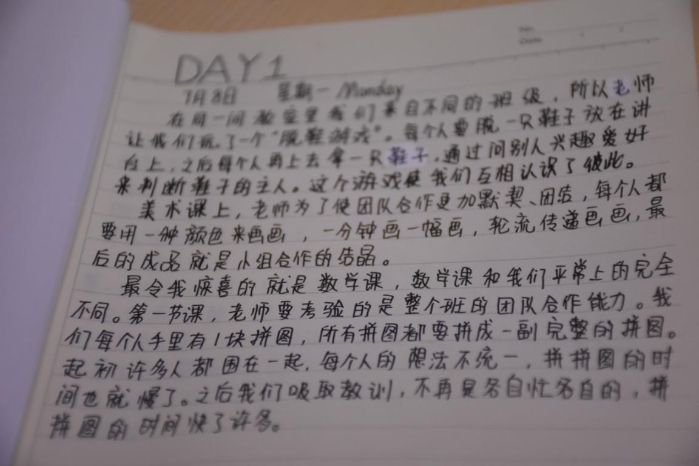 No.
Date
DAY1
7月8日 星期一 Monday
在同一间教室里我们来自不同的班级,所以老师
让我们玩了一个“脱鞋游戏”。每个人要脱一只鞋子放在讲
台上,之后每个人再上去拿一只鞋子,通过问别人兴趣爱好
来判断鞋子的主人。这个游戏使我们互相认识了彼此。
美术课上,老师为了使团队合作更加默契、团结,每个人都
要用一种颜色来画画,一分钟画一幅画,轮流传递画画,最
后的成品就是小组合作的结晶。
最令我惊喜的就是数学课,数学课和我们平常上的完全
不同。第一节课,老师要考验的是整个班的团队合作能力。我
们每个人手里有1块拼图,所有拼图都要拼成一副完整的拼图。
起初许多人都围在一起,每个人的想法不统一,拼拼图的时
间也就慢了。之后我们吸取教训,不再是各自忙各自的,拼
拼图的时间快了许多。